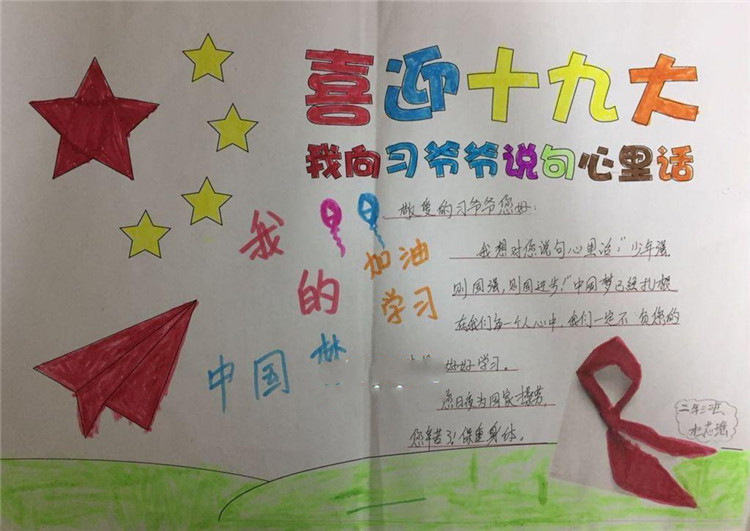 喜迎十九大
我向习爷爷说句心里话
敬爱的习爷爷您好:
我想对您说句心里话:“少年强
则国强,则国进步!”中国梦已经扎根
在我们每一个人心中,我们一定不负您的
好好学习。
您日夜为国家操劳,
您辛苦了!保重身体。
我的
中国
加油
学习
二年三班